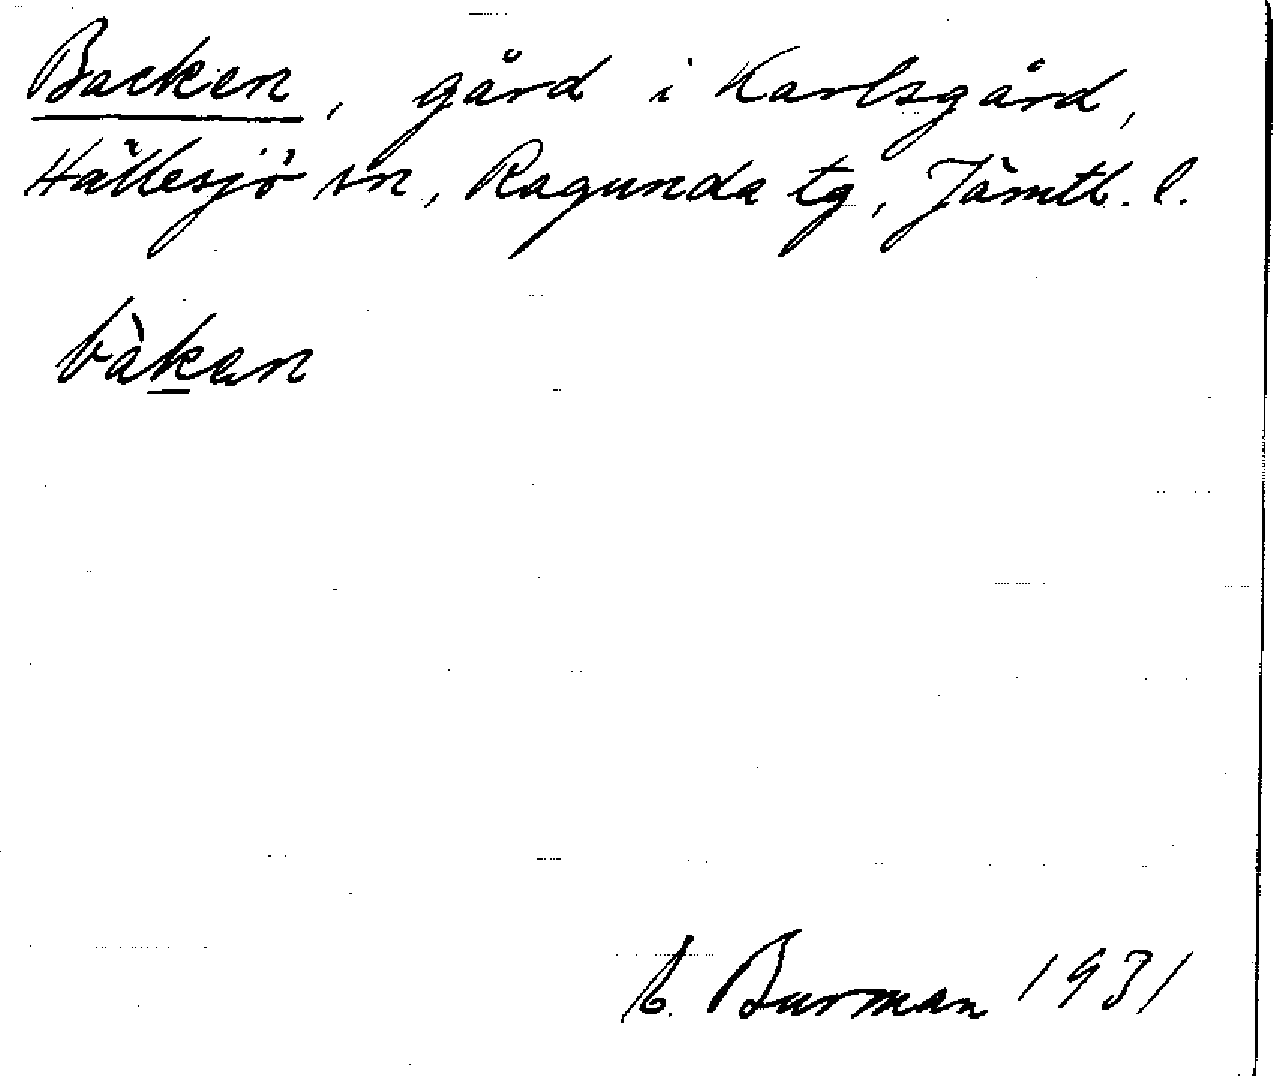 Backen, gård i Karlsgård,
Hällesjö sn, Ragunda tg, Jämtl. l.
bàkan
Burman 1931